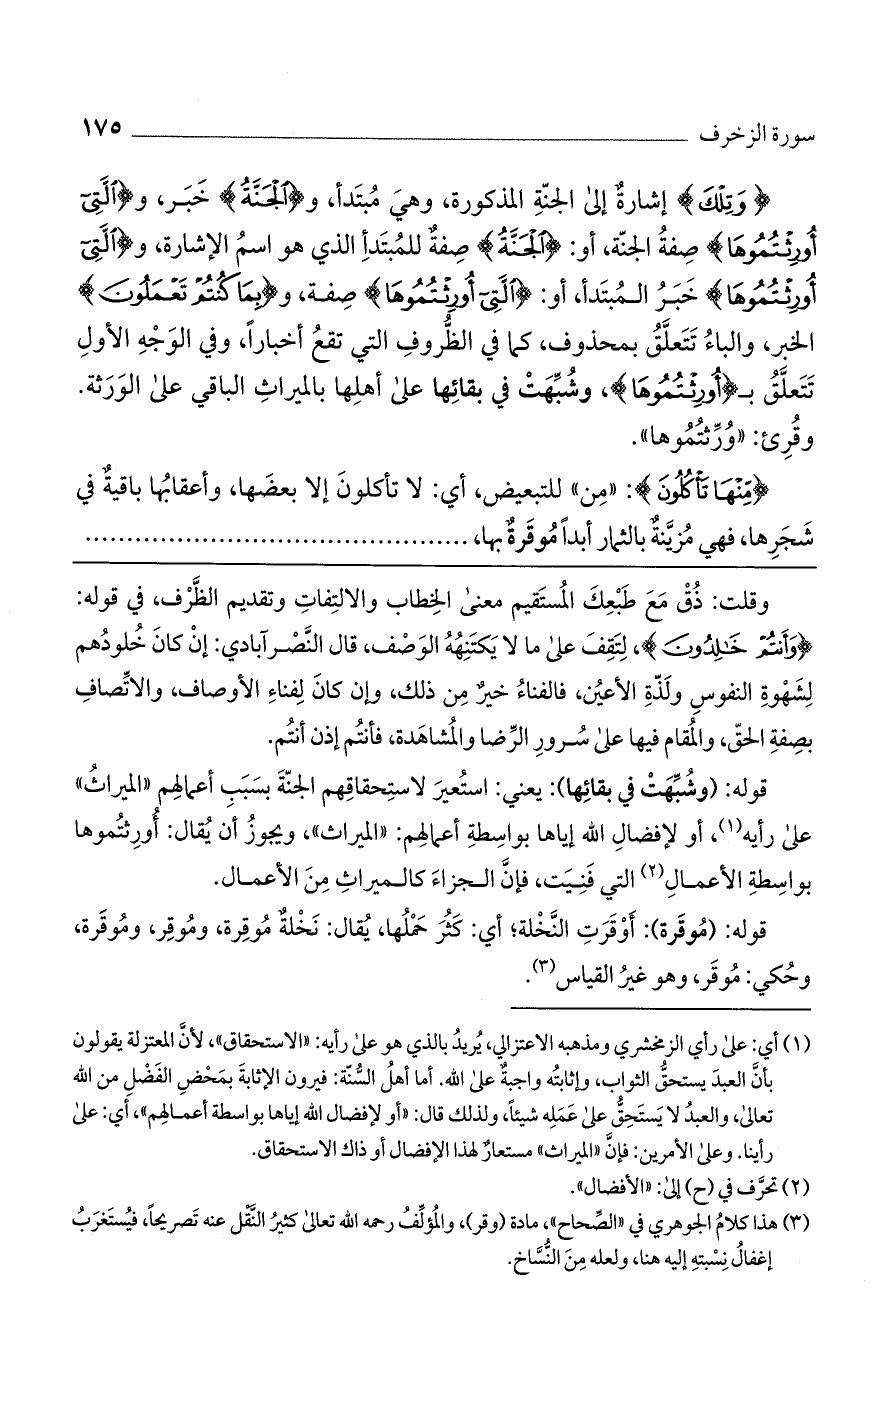 سورة الزخرف ــــــــــــــــــــ ١٧٥
﴿وَتِلْكَ﴾ إشارةٌ إلىٰ الجنّةِ المذكورة، وهيَ مُبتَدأ، و﴿ٱلْجَنَّةُ﴾ خَبَر، و﴿ٱلَّتِىٓ
أُورِثْتُمُوهَا﴾ صِفةُ الجنّة، أو: ﴿ٱلْجَنَّةُ﴾ صِفةٌ للمُبتَدأِ الذي هو اسمُ الإشارة، و﴿ٱلَّتِىٓ
أُورِثْتُمُوهَا﴾ خَبَرُ المُبتَدأ، أو: ﴿ٱلَّتِىٓ أُورِثْتُمُوهَا﴾ صِفة، و﴿بِمَا كُنتُمْ تَعْمَلُونَ﴾
الخبر، والباءُ تَتَعلَّقُ بمحذوف، كما في الظُّروفِ التي تقعُ أخباراً، وفي الوَجْهِ الأولِ
تَتَعلَّقُ بـ﴿أُورِثْتُمُوهَا﴾، وشُبِّهَتْ في بقائِها علىٰ أهلِها بالميراثِ الباقي علىٰ الوَرَثة.
وقُرِئ: «وُرِّثتُمُوها».
﴿مِّنْهَا تَأْكُلُونَ﴾: «مِن» للتبعيض، أي: لا تأكلونَ إلا بعضَها، وأعقابُها باقيةٌ في
شَجَرِها، فهي مُزيَّنةٌ بالثمار أبداً مُوقَرةٌ بها، .............................................
وقلت: ذُقْ مَعَ طَبْعِكَ المُستَقيم معنىٰ الخِطاب والالتِفاتِ وتقديم الظَّرْف، في قوله:
﴿وَأَنتُمْ خَـٰلِدُونَ﴾، لِتَقِفَ علىٰ ما لا يَكتَنِهُهُ الوَصْف، قال النَّصْرآبادي: إنْ كانَ خُلودُهم
لِشَهْوةِ النفوسِ ولَذّةِ الأعيُن، فالفناءُ خيرٌ مِن ذلك، وإن كانَ لِفناءِ الأوصاف، والاتِّصافِ
بصِفةِ الحقّ، والمُقام فيها علىٰ سُرورِ الرِّضا والمُشاهَدة، فأنتُم إذن أنتُم.
قوله: (وشُبِّهَتْ في بقائِها): يعني: استُعيرَ لاستِحقاقِهم الجنّةَ بسَبَبِ أعمالِهم «الميراثُ»
علىٰ رأيه(١)، أو لإفضالِ الله إياها بواسِطةِ أعمالِهم: «الميراث»، ويجوزُ أن يُقال: أُورِثتُموها
بواسِطةِ الأعمالِ(٢) التي فَنِيَت، فإنَّ الجزاءَ كالميراثِ مِنَ الأعمال.
قوله: (مُوقَرة): أَوْقَرَتِ النَّخْلة؛ أي: كَثُرَ حَمْلُها، يُقال: نَخْلةٌ مُوقِرة، ومُوقِر، ومُوقَرة،
وحُكي: مُوقَر، وهو غيرُ القياس(٣).
(١) أي: علىٰ رأي الزمخشري ومذهبه الاعتزالي، يُريدُ بالذي هو علىٰ رأيه: «الاستحقاق»، لأنَّ المعتزلة يقولون
بأنَّ العبدَ يستحقُّ الثواب، وإثابتُه واجبةٌ علىٰ الله. أما أهلُ السُّنّة: فيرون الإثابةَ بمَحْضِ الفَضْلِ من الله
تعالىٰ، والعبدُ لا يَستَحِقُّ علىٰ عَمَلِه شيئاً، ولذلك قال: «أو لإفضال الله إياها بواسطة أعمالِهم»، أي: علىٰ
رأينا. وعلىٰ الأمرين: فإنَّ «الميراث» مستعارٌ لهذا الإفضال أو ذاك الاستحقاق.
(٢) تحرَّف في (ح) إلىٰ: «الأفضال».
(٣) هذا كلامُ الجوهري في «الصِّحاح»، مادة (وقر)، والمُؤلِّفُ رحمه الله تعالىٰ كثيرُ النَّقْل عنه تَصريحاً، فيُستَغرَبُ
إغفالُ نِسْبتِهِ إليه هنا، ولعله مِنَ النُّسَّاخ.